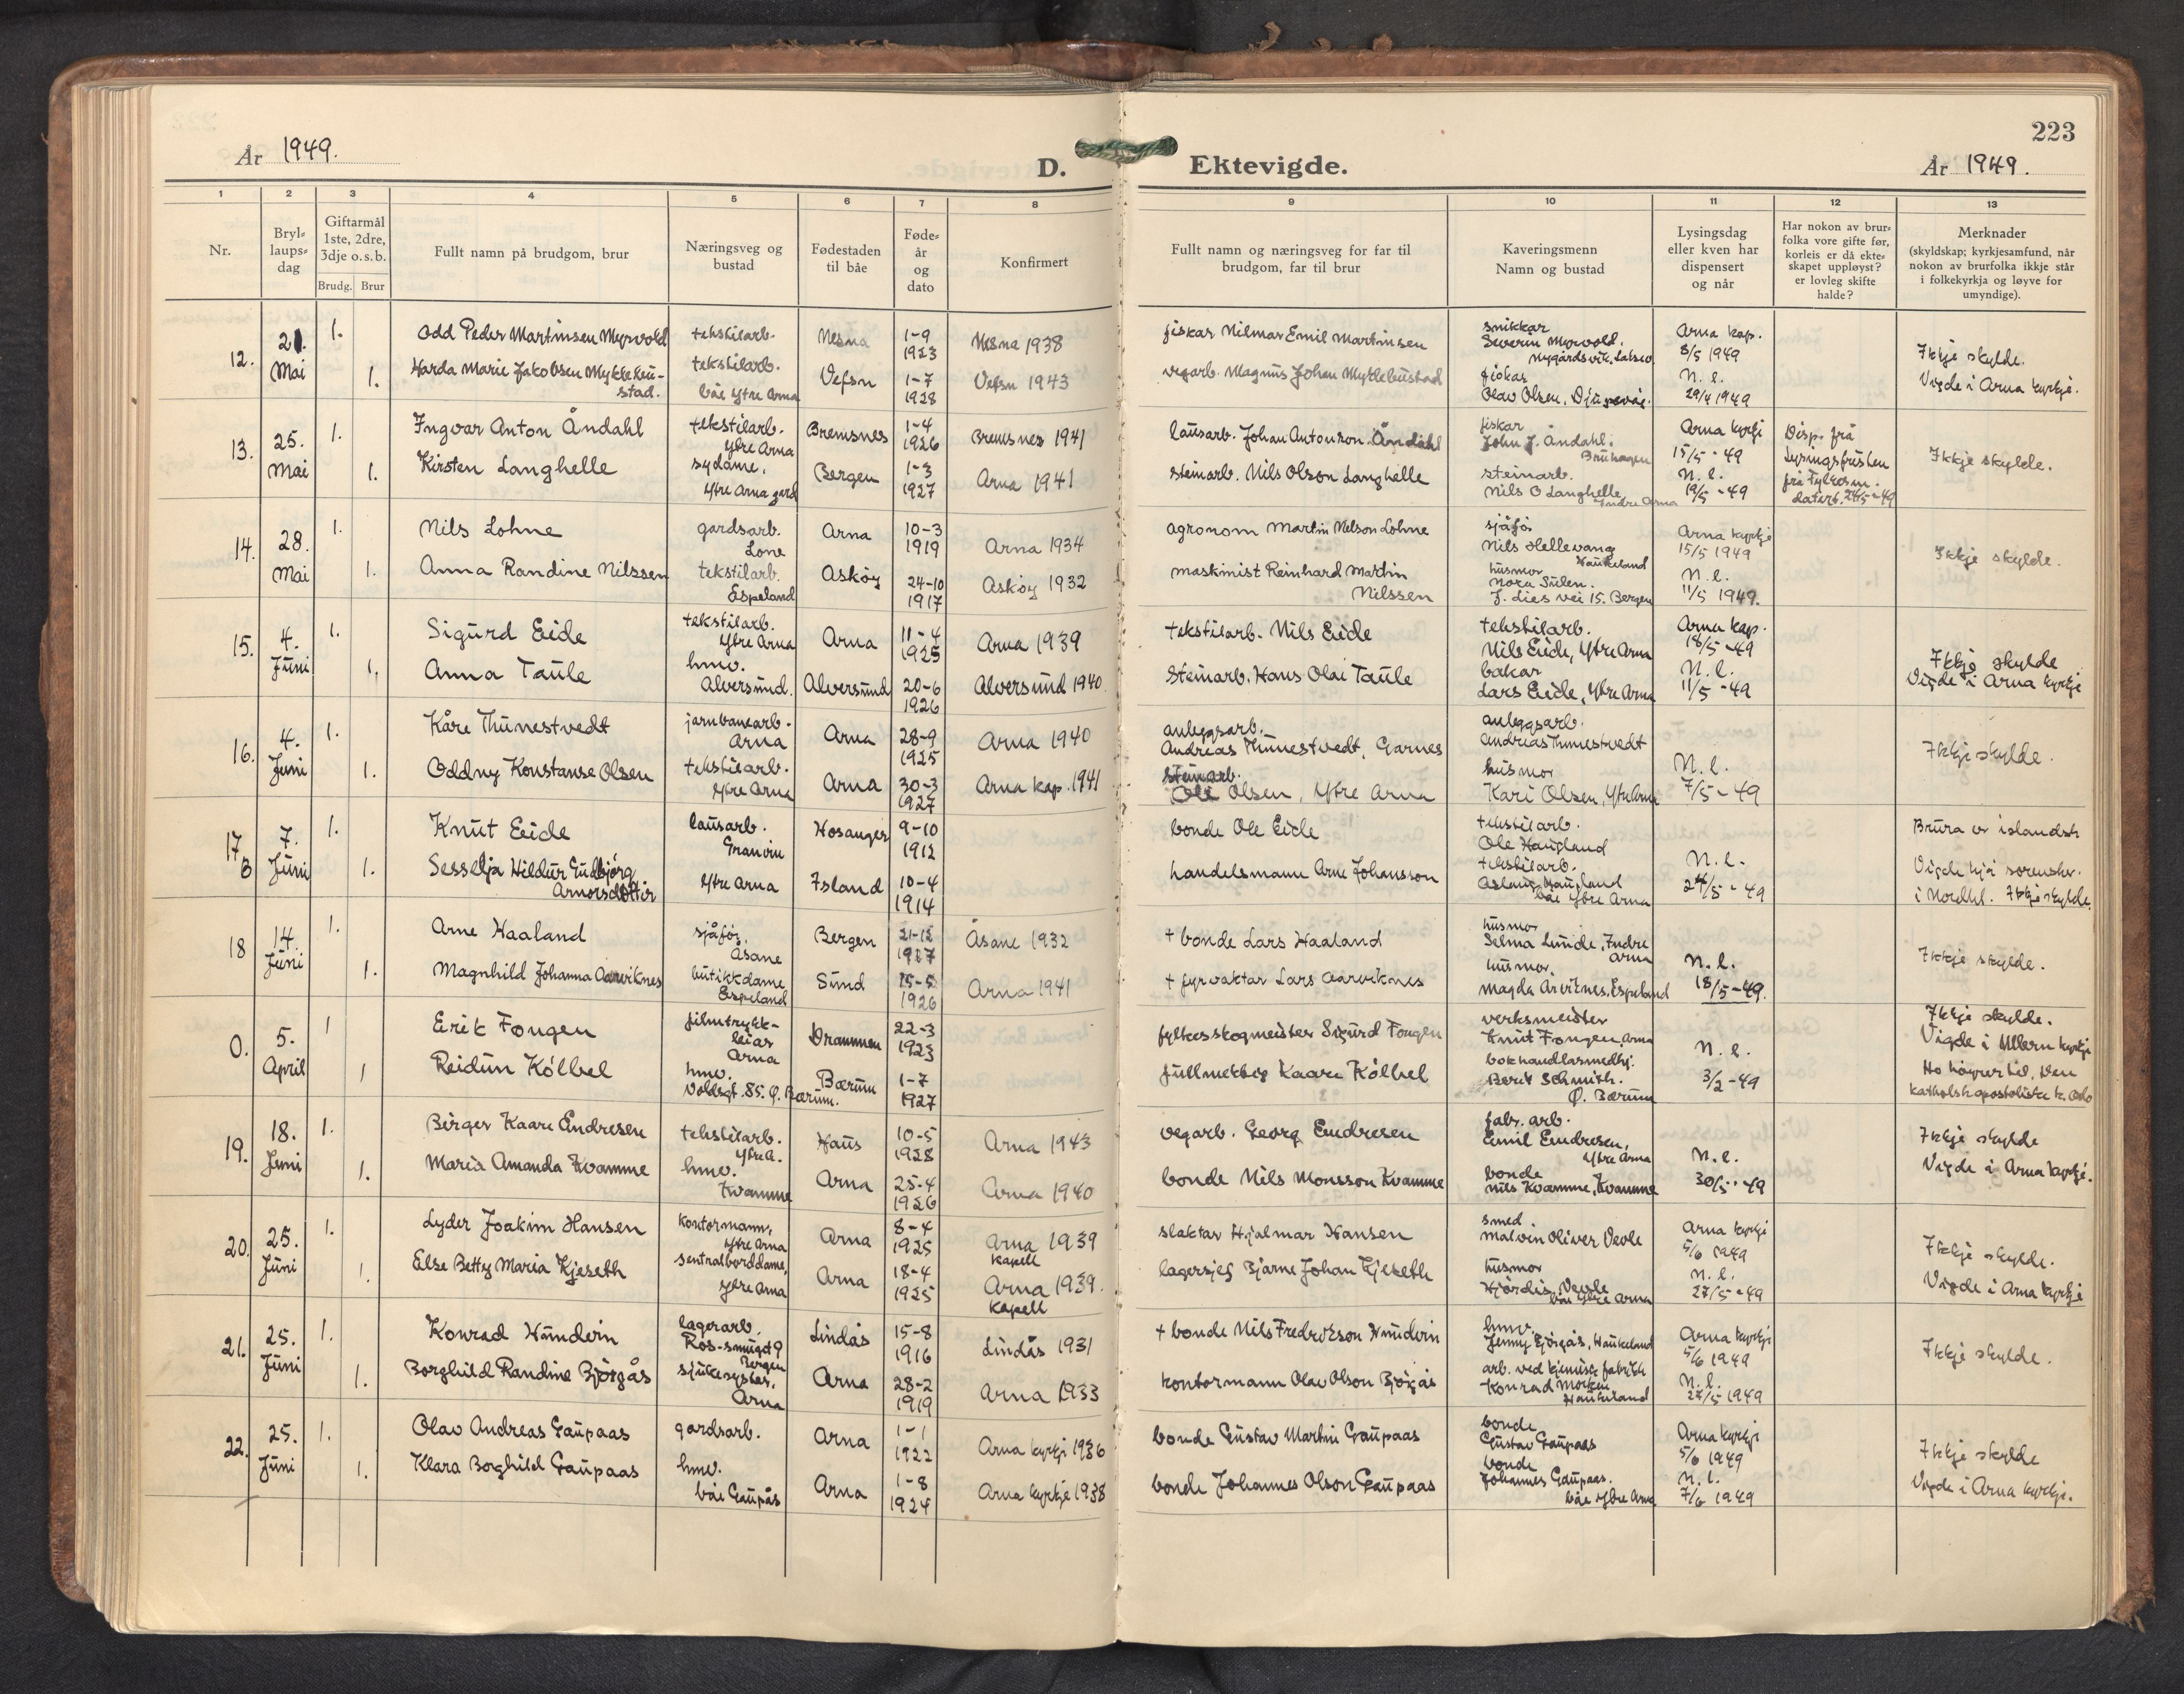 223
År 1949.
D. Ektevigde.
År 1949.
1 2 3 4 5 6 7 8 9 10 11 12 13
Nr.
Bryl-
laups-
dag
Giftarmål
1ste, 2dre,
3dje o.s.b.
Brudg. Brur
Fullt namn på brudgom, brur
Næringsveg og
bustad
Fødestaden
til båe
Føde-
år
og
dato
Konfirmert
Fullt namn og næringsveg for far til
brudgom, far til brur
Kaveringsmenn
Namn og bustad
Lysingsdag
eller kven har
dispensert
og når
Har nokon av brur-
folka vore gifte før,
korleis er då ekte-
skapet uppløyst?
er lovleg skifte
halde?
Merknader
(skyldskap; kyrkjesamfund, når
nokon av brurfolka ikkje står
i folkekyrkja og løyve for
umyndige).
12.
21.
Mai
1.
Odd Peder Martinsen Myrvold
tekstilarb.
Nesna
1-9
1923
Nesna 1938
fiskar Hilmar Emil Martinsen
snikkar
Severin Myrvold.
Nygårdsvik, Laksev.
Arna kap.
8/5 1949
1.
Harda Marie Jakobsen Myklebu-
stad.
tekstilarb.
båe Ytre Arna
Vefsn
1-7
1928
Vefsn 1943
vegarb. Magnus Johan Myklebustad
fiskar
Olav Olsen,
N. l.
29/4 1949
Ikkje skylde.
Vigde i Arna kyrkje.
13.
25.
Mai
1.
Ingvar Anton Åndahl
tekstilarb.
Ytre Arna
Bremsnes
1-4
1926
Bremsnes 1941
lausarb. Johan Antonson Åndahl
fiskar
John J. Åndahl.
Bruhagen
Arna kyrkje
15/5 - 49
Disp. frå
lysingsfristen
frå fylkesm.
datert. 24/5-49
1.
Kirsten Langhelle
sydame,
Ytre Arna gard
Bergen
1-3
1927
Arna 1941
steinarb. Nils Olson Langhelle
steinarb.
Nils O Langhelle
Indre Arna
N. l.
19/5 - 49
Ikkje skylde.
14.
28.
Mai
1.
Nils Lohne
gardsarb.
Lone
Arna
10-3
1919
Arna 1934
agronom Martin Nelson Lohne
sjåfør
Nils Hellevang
Haukeland
Arna kyrkje
15/5 1949
1.
Anna Randine Nilssen
tekstilarb.
Espeland
Askøy
24-10
1917
Askøy 1932
maskinist Reinhard Martin
Nilssen
husmor
Nora Sulen.
J. Lies vei 15. Bergen
N. l.
11/5 1949.
Ikkje skylde.
15.
4.
Juni
1.
Sigurd Eide
tekstilarb.
Ytre Arna
Arna
11-4
1925
Arna 1939
tekstilarb. Nils Eide
tekstilarb.
Nils Eide, Ytre Arna
Arna kap.
18/5 -49
1.
Anna Taule
hmv.
Alversund.
Alversund
20-6
1926
Alversund 1940.
Steinarb. Hans Olai Taule
bakar
Lars Eide, Ytre Arna
N. l.
11/5 -49
Ikkje skylde
Vigde i Arna kyrkje
16.
4.
Juni
1.
Kåre Thunestvedt
jarnbanearb.
Arna
Arna
28-9
1925
Arna 1940
anleggsarb.
Andreas Thunestvedt, Garnes
anleggsarb.
Andreas Thunestvedt
1.
Oddny Konstanse Olsen
tekstilarb.
Ytre Arna
Arna
30-3
1927
Arna kap. 1941
steinarb.
Ole Olsen, Ytre Arna
husmor
Kari Olsen, Ytre Arna
N. l.
7/5 - 49
Ikkje skylde.
17
B
7.
Juni
1.
Knut Eide
lausarb.
Granvin
Hosanger
9-10
1912
bonde Ole Eide
tekstilarb.
Ole Haugland
Brura er islandsk
1.
Sesselja Hildur Gudbjørg
Arnorsdottir
Ytre Arna
Island
10-4
1914
handelsmann Arne Johansson
tekstilarb.
Aslaug Haugland
båe Ytre Arna
N. l.
24/5 - 49
Vigde hjå sorenskr.
i Nordhl. Ikkje skylde.
18
14.
Juni
1.
Arne Haaland
sjåfør,
Åsane
Bergen
21-12
1927
Åsane 1932
+ bonde Lars Haaland
husmor
Selma Lunde, Indre
Arna
1.
Magnhild Johanna Aarviknes
butikkdame
Espeland
Sund
15-5
1926
Arna 1941
+ fyrvaktar Lars Aarviknes
husmor.
Magda Arviknes, Espeland
N. l.
18/5 -49.
Ikkje skylde.
0.
5.
April
1
Erik Fongen
filmtrykk-
leiar
Arna
Drammen
22-3
1923
fylkesskogmeister Sigurd Fongen
verksmeister
Knut Fongen, Arna
N. l.
3/2 -49
1
Reidun Kólbel
hmv.
Voldsgt. 85. Ø. Bærum.
Bærum
1-7
1927
fullmektig Kaare Kólbel
bokhandlarmedhj.
Berit Schmith.
Ø. Bærum
Ikkje skylde.
Vigde i Ullern kyrkje
Ho høyrer til, Den
katholsk apostoliske k. Oslo
19.
18.
Juni
1.
Birger Kaare Endresen
tekstilarb.
Ytre A.
Haus
10-5
1928
Arna 1943
vegarb. Georg Endresen
fabr. arb.
Emil Endresen,
Ytre Arna
1.
Maria Amanda Kvamme
hmv.
Kvamme
Arna
25-4
1926
Arna 1940
bonde Nils Monsson Kvamme
bonde
Nils Kvamme, Kvamme
N. l.
30/5 - 49
Ikkje skylde
Vigde i Arna kyrkje.
20.
25.
Juni
1.
Lyder Joakim Hansen
kontormann,
Ytre Arna
Arna
8-4
1925
Arna 1939
kapell
slaktar Hjalmar Hansen
smed
Malvin Oliver Vevle
Arna kyrkje
5/6 1949
1.
Else Betty Maria Kjeseth
sentralborddame,
Ytre Arna
Arna
18-4
1925
Arna 1939.
kapell
lagersjef Bjarne Johan Kjeseth
husmor
Hjørdis Vevle
båe Ytre Arna
N. l.
27/5 -49
Ikkje skylde.
Vigde i Arna kyrkje
21.
25.
Juni
1.
Konrad Hundvin
lagerarb.
Ros-smuget 9
Bergen
Lindås
15-8
1916
Lindås 1931
+ bonde Nils Fredrikson Hundvin
hmv.
Jenny Bjørgås, Haukeland
Arna kyrkje
5/6 1949
1.
Borghild Randine Bjørgås
sjukesyster,
Arna
Arna
28-2
1919
Arna 1933
kontormann Olav Olson Bjørgås
arb. ved kjemisk fabrikk
Konrad Morken
Haukeland
N. l.
27/5 1949
Ikkje skylde.
22.
25.
Juni
1.
Olav Andreas Gaupaas
gardsarb.
Arna
1-1
1922
Arna kyrkje 1936
bonde Gustav Martin Gaupaas
bonde
Gustav Gaupaas
Arna kyrkje
5/6 1949
1.
Klara Borghild Gaupaas
hmv.
båe Gaupås
Arna
1-8
1924
Arna kyrkje 1938
bonde Johannes Olson Gaupaas
bonde
Johannes Gaupaas.
båe Ytre Arna
N. l.
7/6 1949
Ikkje skylde
Vigde i Arna kyrkje.